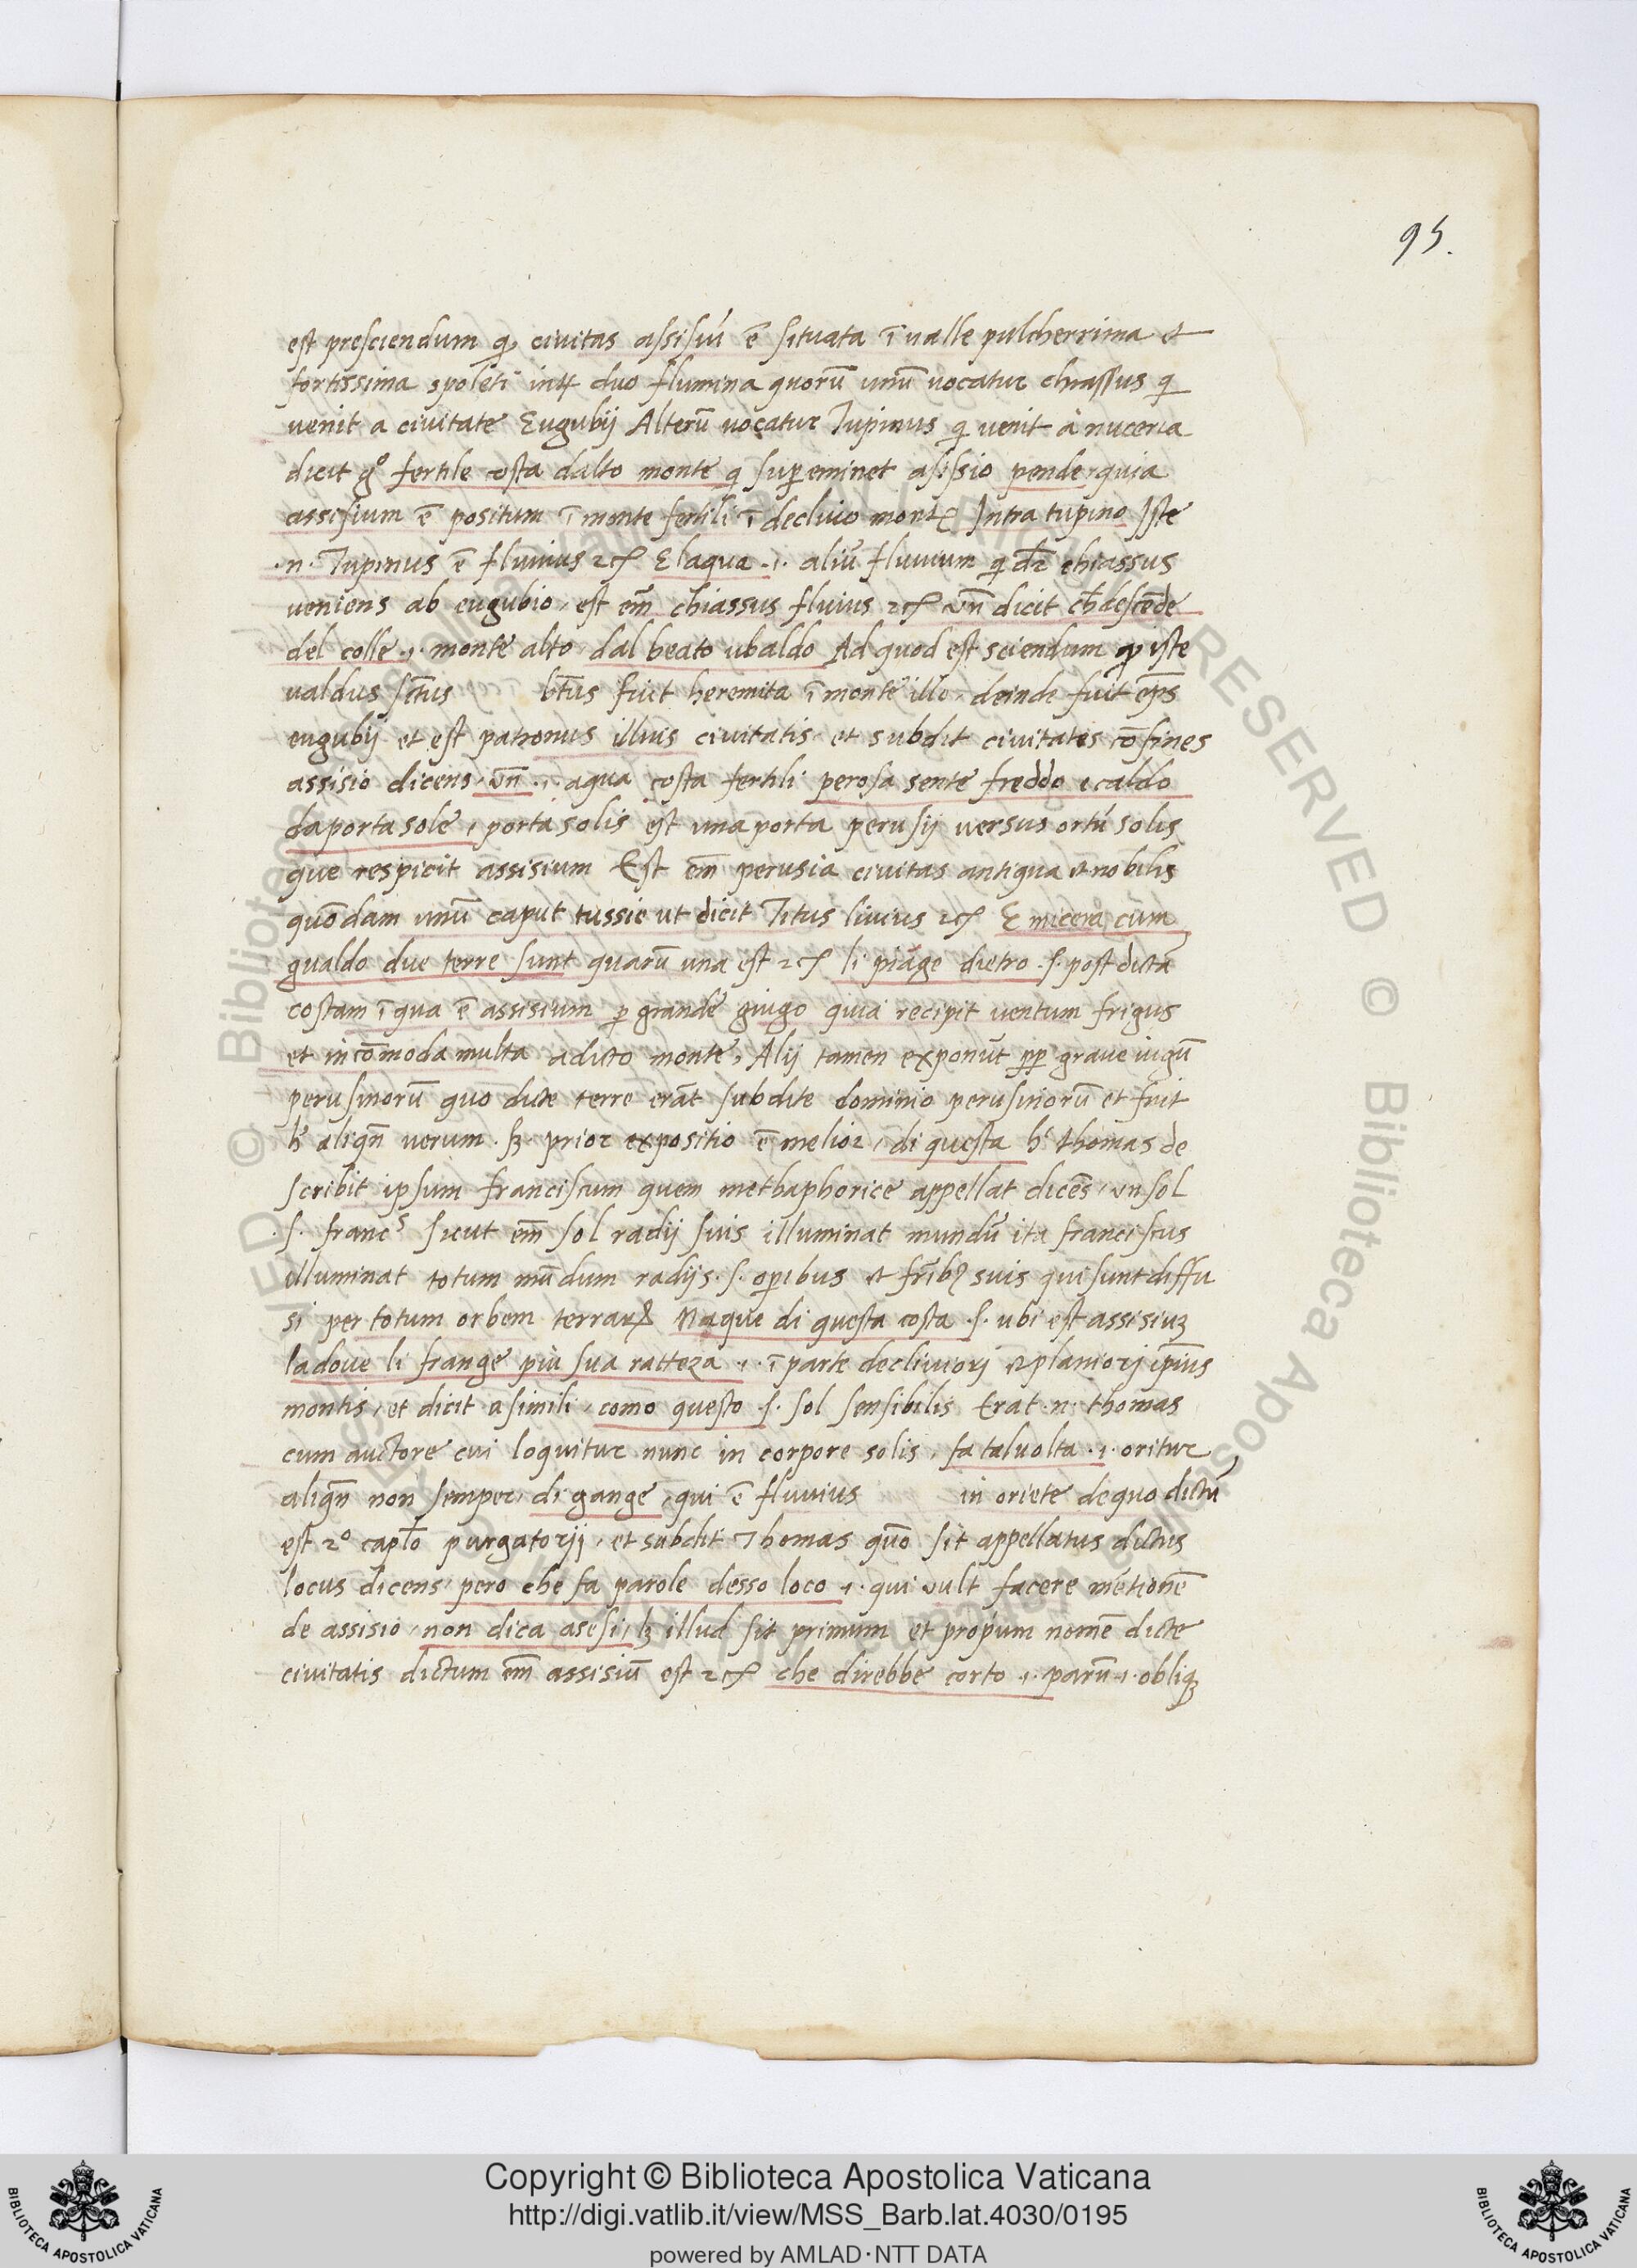 95.
est presciendum qͥ civitas assisiú ē situata ī ualle pulcherrima et
fortissima spoleti intʳ duo flumina quorū unū uocatur chiassus qͥ
uenit a civitate Eugubij Alterū uocatur Tupinus qͥ uenit à nuceria
dicit gͦ fertile costa dalto monte qͥ suꝑeminet asissio pende, quia
assisium ē positum ī monte fertili ī declivio mont⁊ Intra tupino Iste
.n. Tupinus ē fluuius ⁊cͥ E laqua .i. aliū fluuium qͥ dr̄ chiassus
ueniens ab eugubio, est em̄ chiassus fluius ⁊cͥ un̄ dicit ch̄ descēde
del colle .i. monte alto, dal beato ubaldo Ad quod est sciendum ꝙ iste
ualdus sc̄tus bt̄us fuit heremita ī monte illo, deinde fuit ep̄s
eugubij et est patronus illius civitatis, et subdit civitates cōfines
assisio dicens, un̄ .i. aqua costa fertili perosa sente freddo e caldo
da porta sole, porta solis est una porta perusij uersus ortū solis
que respicit assisium Est em̄ perusia civitas antiqua et nobilis
quōdam unū caput tussie ut dicit Titus liuius ⁊cͥ E nucera cum
gualdo due terre sunt quarū una est ⁊cͥ li piāge dietro .s. post dictā
costam ī qua ē assisium ꝑ grande giugo quia recipit uentum frigus
et incōmoda multa a dicto monte, Alij tamen exponūt ꝓp̄ graue iugū
perusinorū quo dicte terre erāt subdite dominio perusinorū et fuit
h̄ aliqn̄ uerum .sꝫ prior expositio ē melior, di questa hͥ thomas de
scribit ipsum franciscum quem methaphorice appellat dicēs, un sol
.s. francˢ sicut em̄ sol radij suis illuminat mundū ita franciscus
illuminat totum mūdum radijs .s. oꝑibus et fr̄ibꝰ suis qui sunt diffu
si per totum orbem terraꝝ Naque di questa costa .s. ubi est assisiuꝫ
la doue li frange più sua ratteza .i. ī parte decliuiori et planiori ip̄ius
montis, et dicit a simili, como questo .s. sol sensibilis Erat .n. thomas
cum auctore cui loquitur nunc in corpore solis, fa taluolta .i. oritur
aliqn̄ non semper, di gange, qui ē fluuius in oriēte de quo dictū
est 2ͦ capl̄o purgatorij, et subdit Thomas quō sit appellatus dictus
locus dicens, pero che fa parole desso loco .i. qui uult facere mētionē
de assisio, non dica asesi, lꝫ illud sit primum et propium nomē dicte
civitatis dictum em̄ assisiū est ⁊cͥ che direbbe corto .i. parū .i. obliqꝫ
© Biblioteca Apostolica Vaticana
Copyright © Biblioteca Apostolica Vaticana
http://digi.vatlib.it/view/MSS_Barb.lat.4030/0195
powered by AMLAD·NTT DATA
BIBLIOTECA APOSTOLICA VATICANA
BIBLIOTECA APOSTOLICA VATICANA